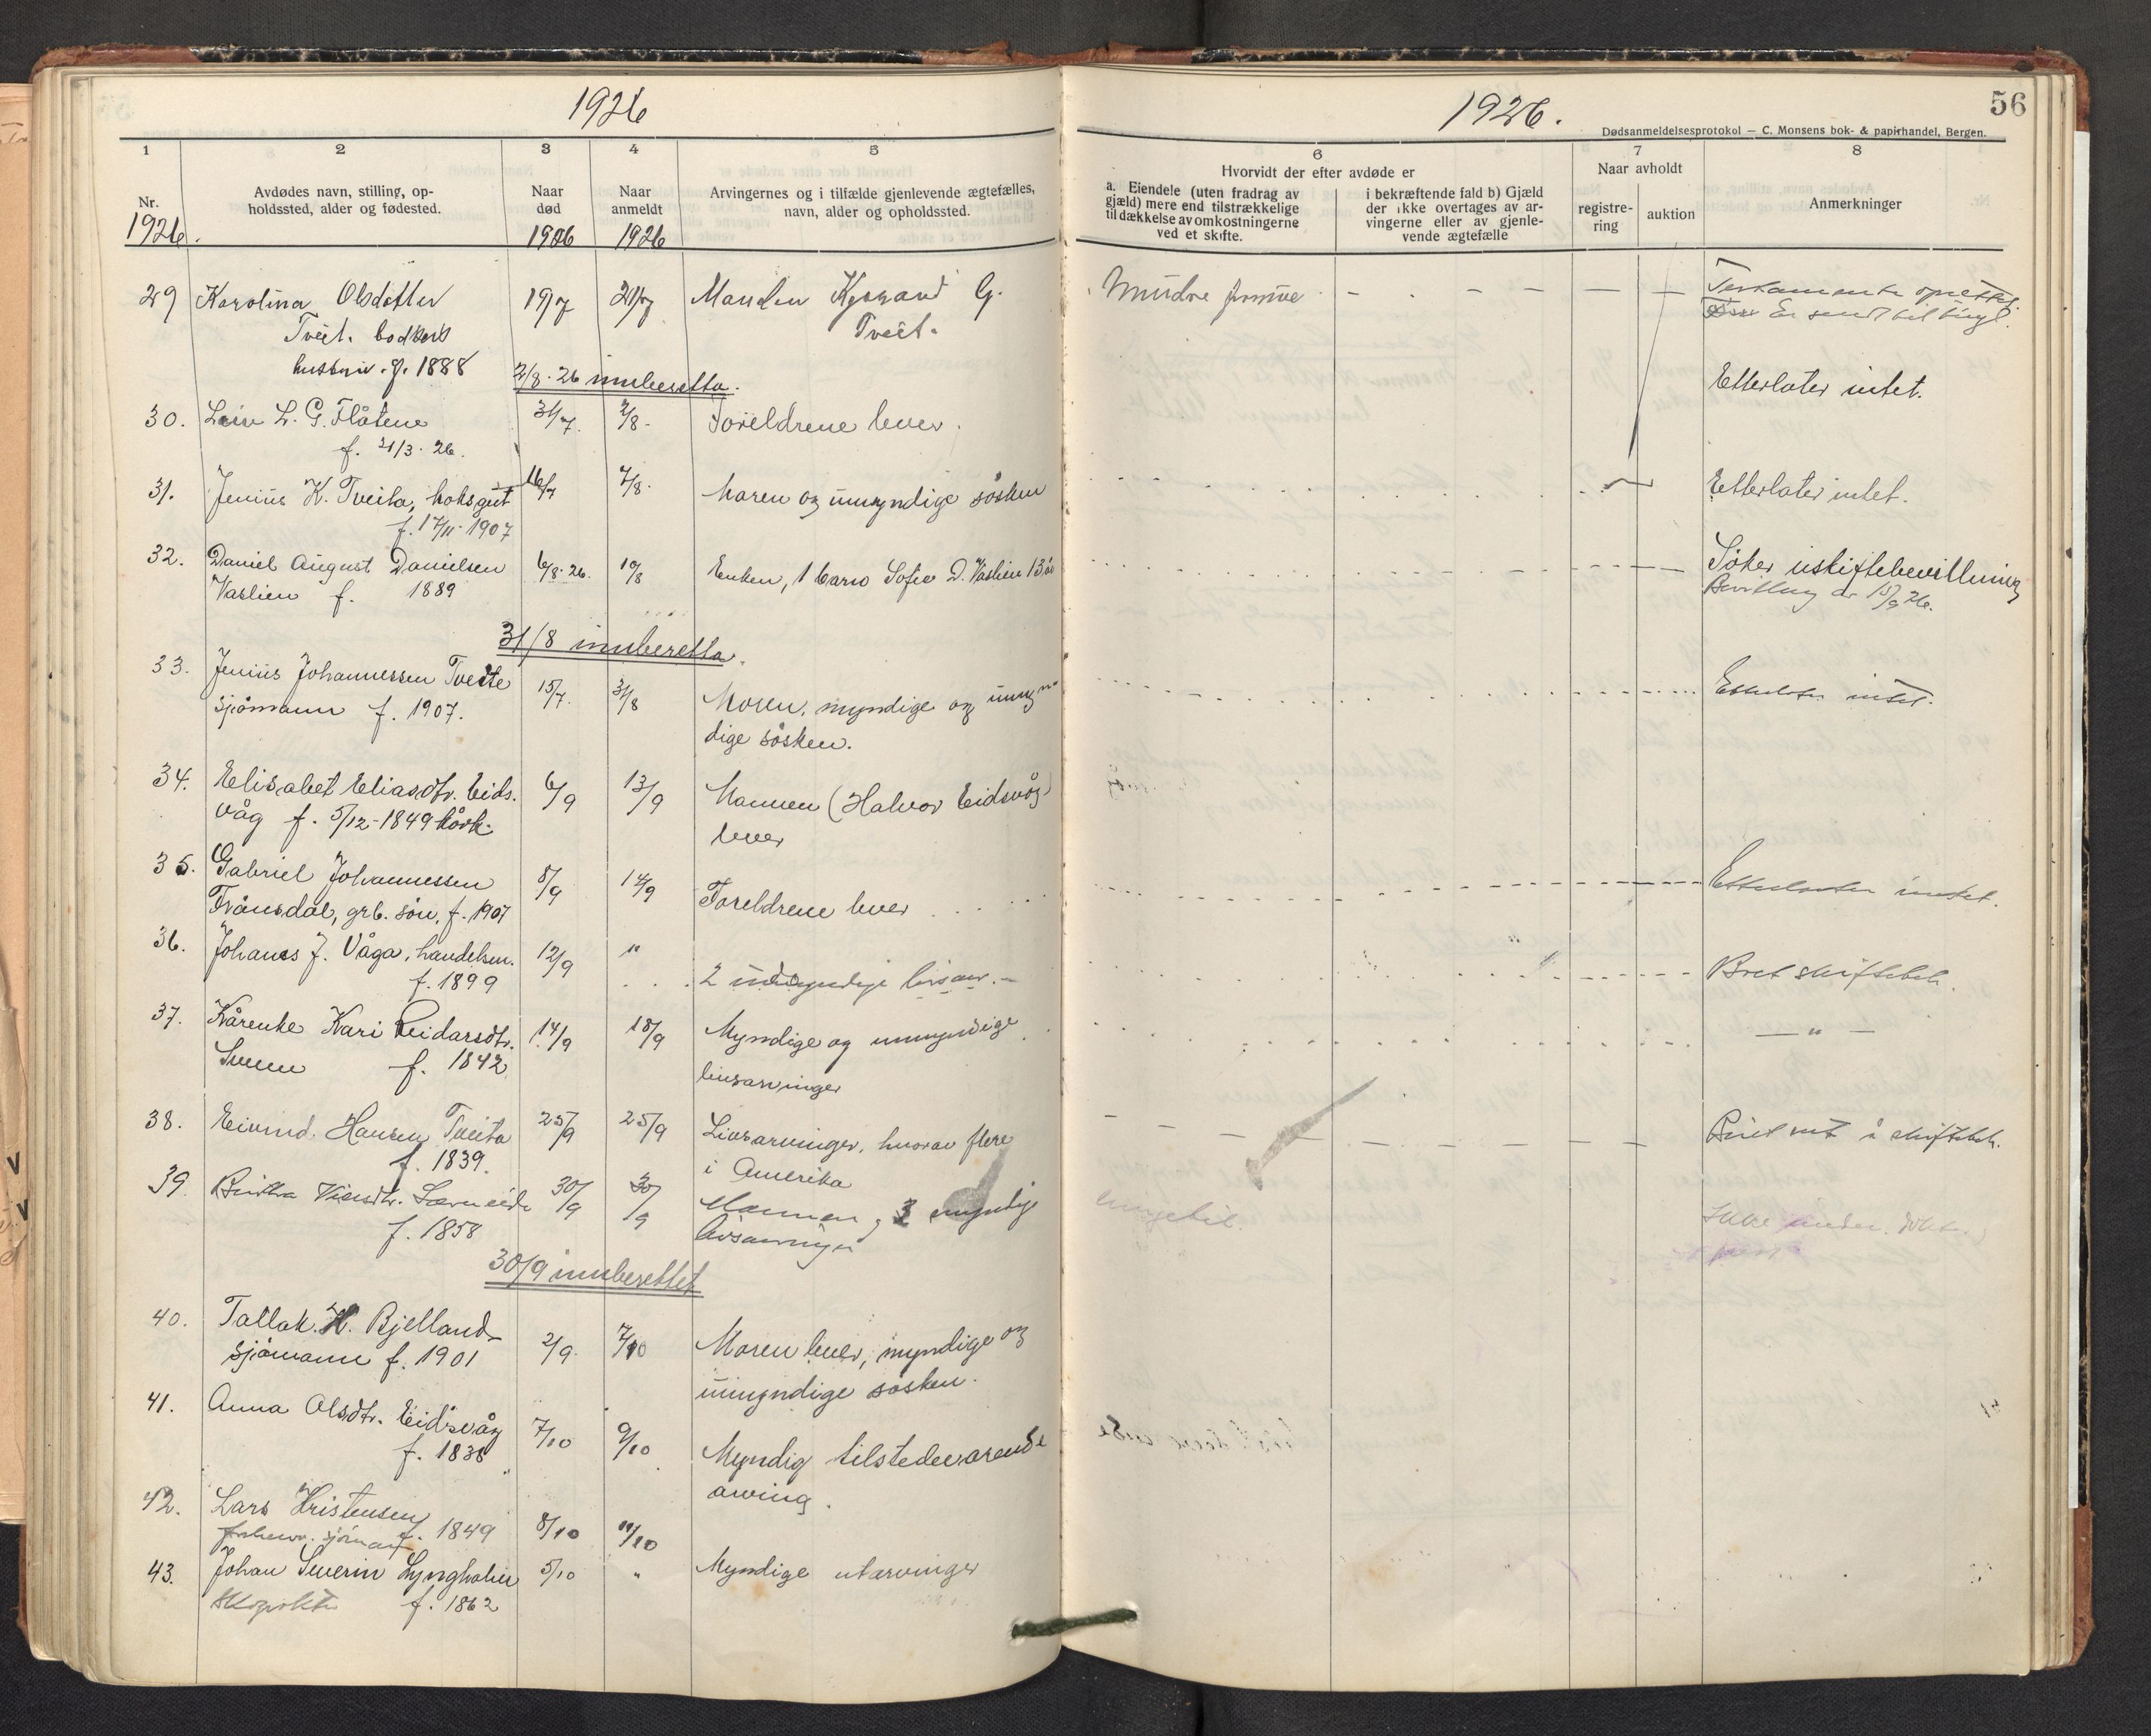 1926
1926.
56
Dødsanmeldelsesprotokol — C. Monsens bok- & papirhandel, Bergen.
1
2
3
4
5
6
7
8
Nr.
1926.
Avdødes navn, stilling, op-
holdssted, alder og fødested.
Naar
død
1926
Naar
anmeldt
1926
Arvingernes og i tilfælde gjenlevende ægtefælles,
navn, alder og opholdssted.
Hvorvidt der efter avdøde er
a. Eiendele (uten fradrag av
gjæld) mere end tilstrækkelige
til dækkelse av omkostningerne
ved et skifte.
i bekræftende fald b) Gjæld
der ikke overtages av ar-
vingerne eller av gjenle-
vende ægtefælle
Naar avholdt
registre-
ring
auktion
Anmerkninger
29 Karolina Olsdotter 19/7 21/7 Manden G.
Tveit.
Tveit.
f. 1888
2/8. 26 innberetta.
Etterlater intet.
30. L. G. Flåtene 31/7. 2/8. Foreldrene lever.
f. 21/3. 26.
31. Jenius K. Tveita, 16/7 7/8. Moren og umyndige søsken Etterlater intet.
f. 17/11-1907
32. Daniel August Danielsen 6/8. 26. 10/8 Enken, 1 barn Sofie D. Vaslien 13 år Søker uskiftebevillning
Vaslien f. 1889
31/8 innberetta.
33. Jenius Johannessen Tveite 15/7. 31/8 Moren, myndige og umyn-
sjömann f. 1907. dige søsken.
Etterlater intet.
34. Elisabet Eliasdtr. Eids- 6/9 13/9 Mannen (Halvor Eidsvåg)
våg f. 5/12-1849 lever
35. Gabriel Johannessen 8/9 14/9 Foreldrene lever Etterlater intet.
Trånsdal, grb. søn, f. 1907
36. Johanes J. Våga, handelsm. 12/9 " 2 umyndige livsarv.
f. 1899
37. Kårenke Kari Reidarsdtr. 14/9 18/9 Myndige og umyndige — " —
f. 1842 livsarvinger
38. Eivind Hansen Tveita 25/9 25/9 Livsarvinger, hvorav flere
f. 1839. i Amerika
39. 30/9 30/9 Mannen, 3 myndige
f. 1858 livsarvinger
30/9 innberettet
40. Tallak H. Bjelland 2/9. 7/10 Moren lever, myndige og
sjömann f. 1901 umyndige søsken.
41. Anna Olsdtr. Eidsvåg 7/10 9/10 Myndig tilstedeværende
f. 1838 arving.
42. Lars Kristensen
f. 1849 8/10 11/10
43. Johan Severin Lyngholm 5/10 " Myndige utarvinger
f. 1862